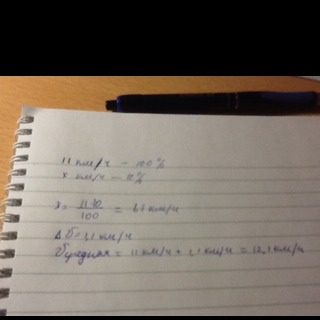 11 км/ч — 100%
x км/ч — 10%
x = 11·10 / 100 = 1,1 км/ч
Δ v = 1,1 км/ч
v средняя = 11 км/ч + 1,1 км/ч = 12,1 км/ч